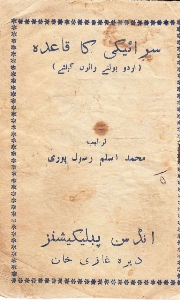 سرائیکی کا قاعدہ
(اردو بولنے والوں کیلئے)
از
محمد اسلم رسول پوری
انڈس پبلیکیشنز
ڈیرہ غازی خان